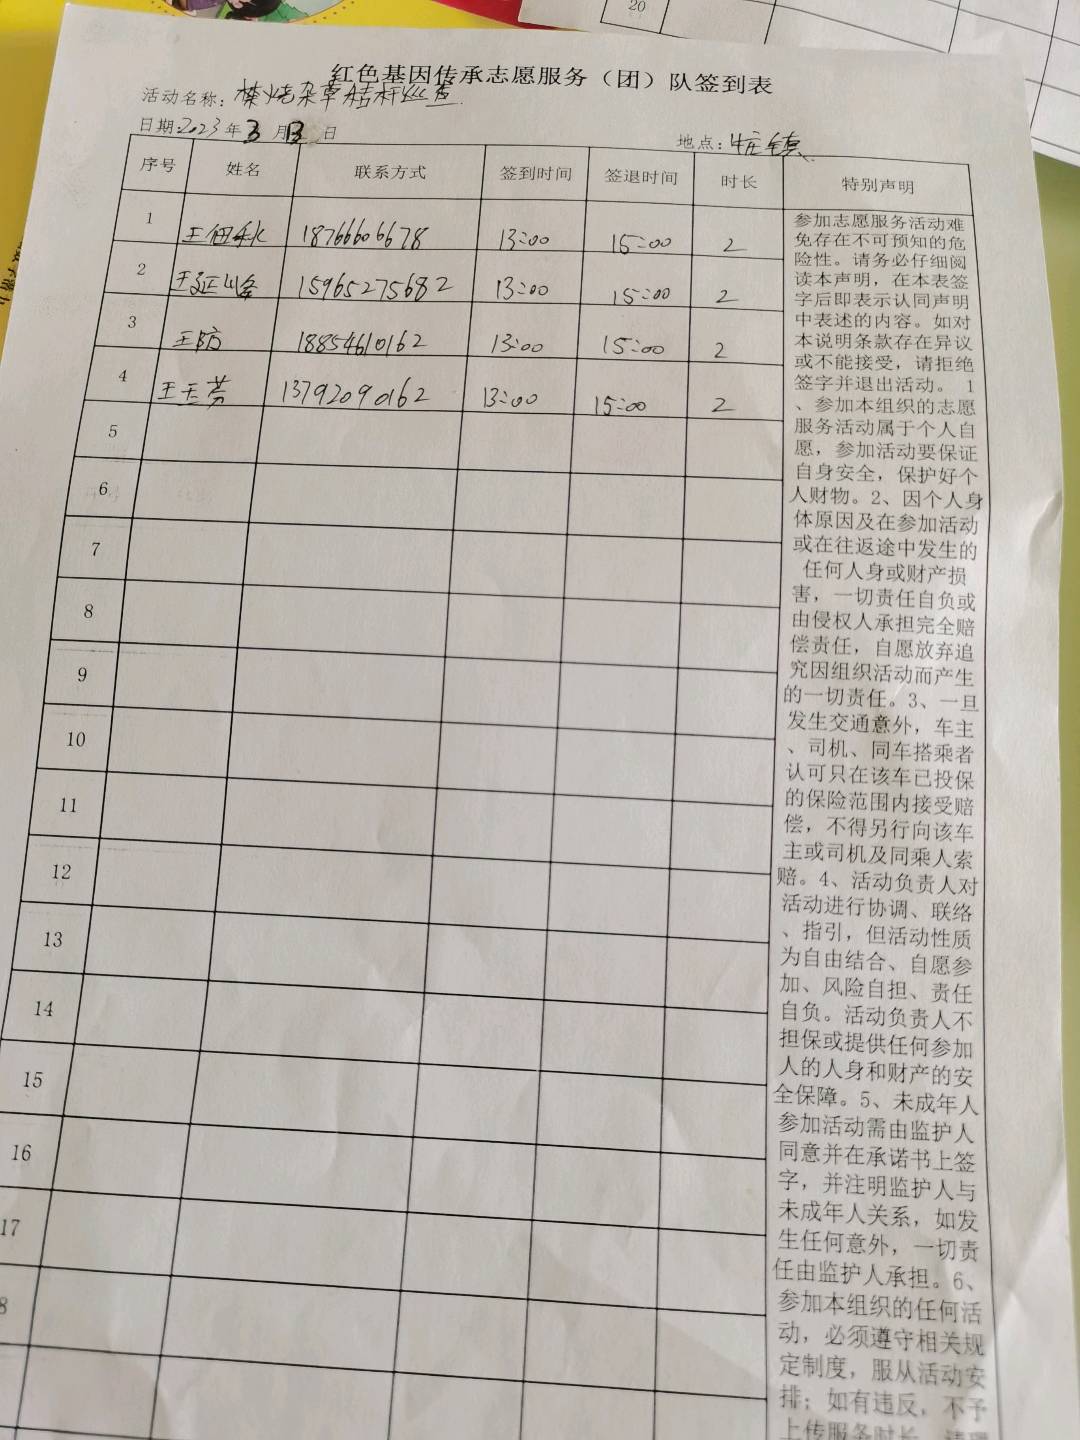 20
红色基因传承志愿服务（团）队签到表
活动名称：焚烧杂草秸秆巡查
日期：2023年3月13日 地点：牛庄镇
序号 姓名 联系方式 签到时间 签退时间 时长 特别声明
1 王佃秋 18766606678 13:00 15:00 2
2 王延峰 15965275682 13:00 15:00 2
3 王防 18854610162 13:00 15:00 2
4 王玉芳 13792090162 13:00 15:00 2
5
6
7
8
9
10
11
12
13
14
15
16
17
8
参加志愿服务活动难
免存在不可预知的危
险性。请务必仔细阅
读本声明，在本表签
字后即表示认同声明
中表述的内容。如对
本说明条款存在异议
或不能接受，请拒绝
签字并退出活动。 1
、参加本组织的志愿
服务活动属于个人自
愿，参加活动要保证
自身安全，保护好个
人财物。2、因个人身
体原因及在参加活动
或在往返途中发生的
任何人身或财产损
害，一切责任自负或
由侵权人承担完全赔
偿责任，自愿放弃追
究因组织活动而产生
的一切责任。3、一旦
发生交通意外，车主
、司机、同车搭乘者
认可只在该车已投保
的保险范围内接受赔
偿，不得另行向该车
主或司机及同乘人索
赔。4、活动负责人对
活动进行协调、联络
、指引，但活动性质
为自由结合、自愿参
加、风险自担、责任
自负。活动负责人不
担保或提供任何参加
人的人身和财产的安
全保障。5、未成年人
参加活动需由监护人
同意并在承诺书上签
字，并注明监护人与
未成年人关系，如发
生任何意外，一切责
任由监护人承担。6、
参加本组织的任何活
动，必须遵守相关规
定制度，服从活动安
排；如有违反，不予
上传服务时长，请理